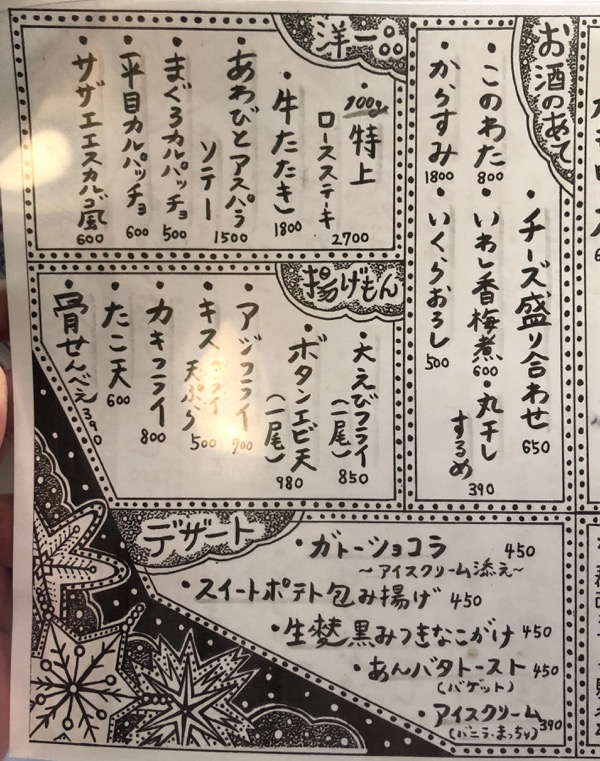 お酒のあて
・このわた
800
・からすみ
1800
・チーズ盛り合わせ
650
・いわし香梅煮
600
・丸干し
するめ
390
・いくらおろし
500
洋一品
・100g特上
ロースステーキ
2700
・牛たたき
1800
・あわびとアスパラ
ソテー
1500
・まぐろカルパッチョ
500
・平目カルパッチョ
600
・サザエエスカルゴ風
600
揚げもん
・大えびフライ
(一尾)
850
・ボタンエビ天
(一尾)
980
・アジフライ
・キス
天ぷら
500
・カキフライ
800
・たこ天
600
・骨せんべえ
390
デザート
・ガトーショコラ 450
〜アイスクリーム添え〜
・スイートポテト包み揚げ 450
・生麩黒みつきなこがけ 450
・あんバタトースト 450
(バゲット)
・アイスクリーム 390
(バニラ・まっちゃ)